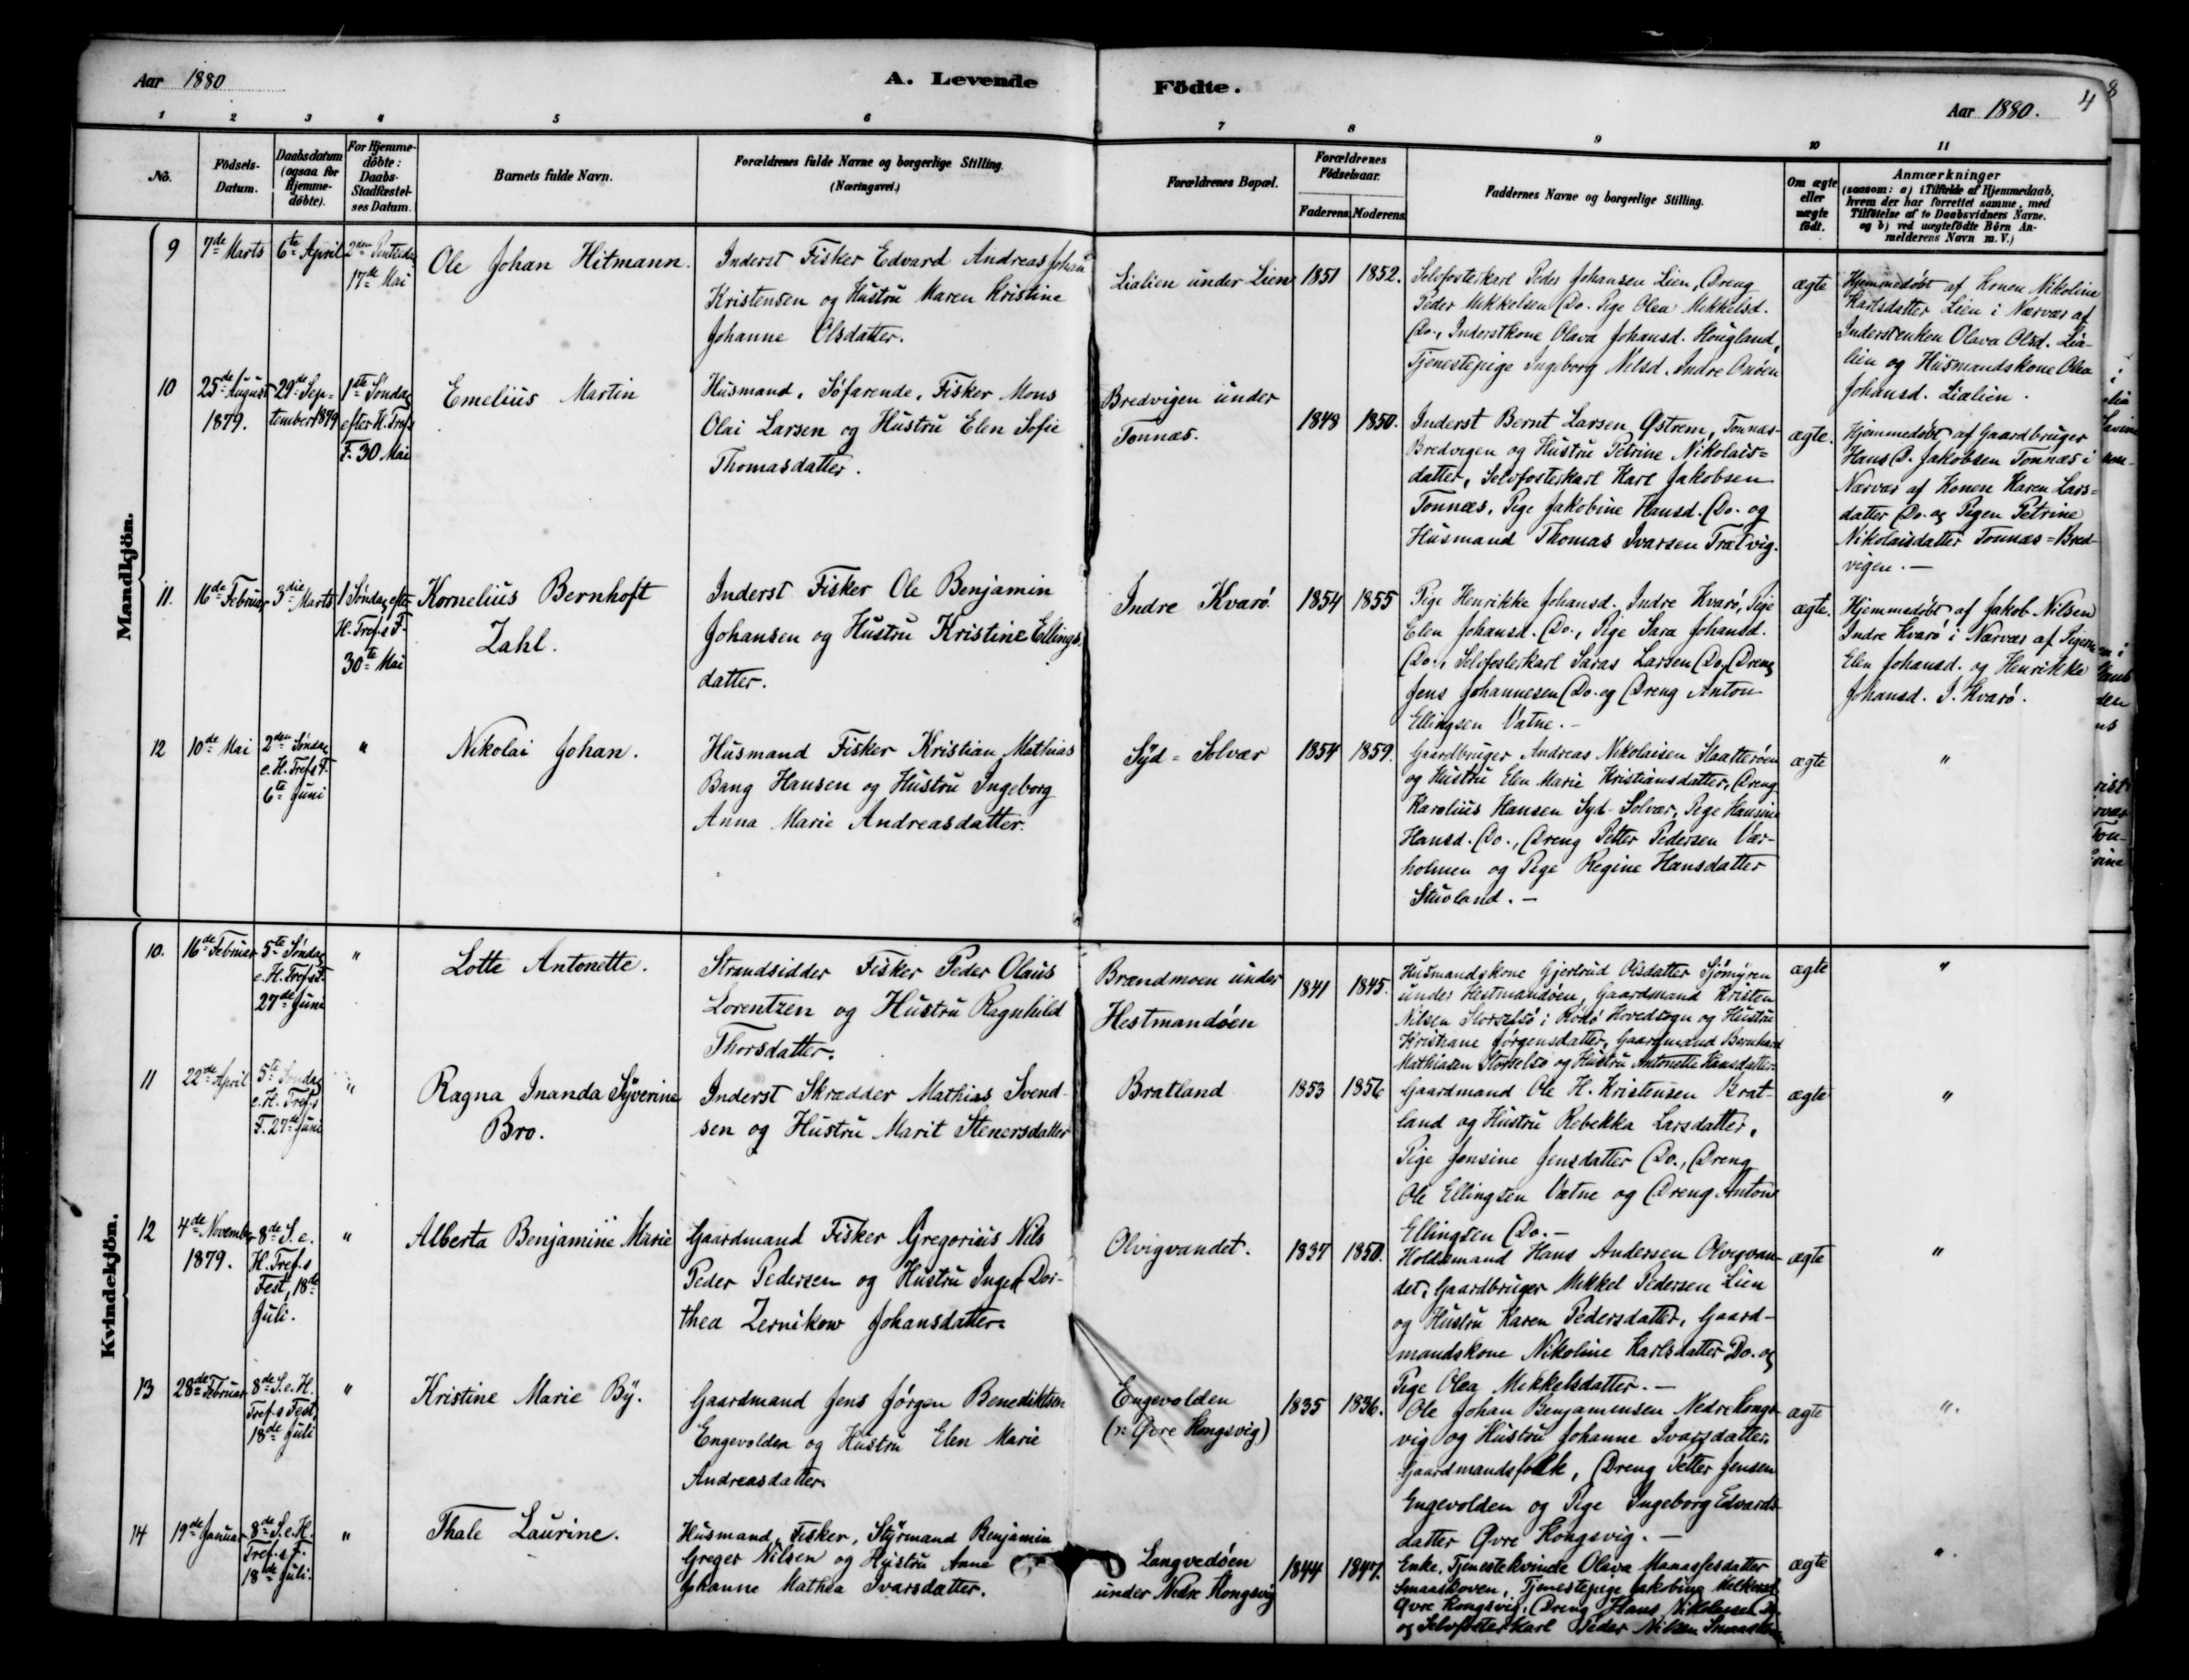 Aar 1880
A. Levende
Födte.
Aar 1880.
4
8
1 2 3 4 5 6 7 8 9 10 11
No.
Födsels-
Datum.
Daabsdatum
(ogsaa for
Hjemme-
döbte).
For Hjemme-
döbte:
Daabs-
Stadfæstel-
ses Datum.
Barnets fulde Navn.
Forældrenes fulde Navne og borgerlige Stilling.
(Næringsvei.)
Forældrenes Bopæl.
Forældrenes
Födselsaar.
Faderens. Moderens.
Faddernes Navne og borgerlige Stilling.
Om ægte
eller
uægte
födt.
Anmærkninger
(saasom: a) i Tilfælde af Hjemmedaab,
hvem der har forrettet samme, med
Tilföielse af to Daabsvidners Navne.
og b) ved uægtefödte Börn An-
melderens Navn m. V.)
Mandkjön.
9
7de Marts
6te April
2den
17de Mai
Ole Johan Hitmann.
Inderst Fisker Edvard Andreas Johan
Kristensen og Hustru Maren Kristine
Johanne Olsdatter.
Lialien under Lien
1851
1852.
Selvfosterkarl Peder Johansen Lien, Dreng
Peder Mikkelsen Do. Pige Olea Mikkelsd.
Do., Inderstkone Olava Johansd. Hougland,
Tjenestepige Ingeborg Nilsd. Indre Onöen
ægte
Hjemmedöbt af Konen Nikoline
Karlsdatter Lien i Nærvær af
Inderstenken Olava Olsd. Lia-
lien og Husmandskone Olea
Johansd. Lialien.
10
25de August
1879.
29de Sep-
tember 1879
1ste Söndag
efter H. Tref.s
F. 30 Mai
Emelius Martin
Husmand, Söfarende, Fisker Mons
Olai Larsen og Hustru Elen Sofie
Thomasdatter.
Bredvigen under
Tonnæs.
1848
1850.
Inderst Bernt Larsen Östrem, Tonnæs-
Bredvigen og Hustru Petrine Nikolais=
datter, Selvfosterkarl Karl Jakobsen
Tonnæs, Pige Jakobine Hansd. Do. og
Husmand Thomas Ivarsen Trætvig.
ægte.
Hjemmedöbt af Gaardbruger
Hans P. Jakobsen Tonnæs i
Nærvær af Konen Karen Lars=
datter Do. og Pigen Petrine
Nikolaisdatter Tonnæs=Bred-
vigen.—
11.
16de Februar
3die Marts
1 Söndag efter
H. Tref.s F.
30te Mai
Kornelius Bernhoft
Zahl.
Inderst Fisker Ole Benjamin
Johansen og Hustru Kristine Ellings-
datter.
Indre Kvarö
1854
1855
Pige Henrikke Johansd. Indre Kvarö, Pige
Elen Johansd. Do., Pige Sara Johansd.
Do., Selvfosterkarl Saras Larsen Do, Dreng
Jens Johannesen Do. og Dreng Anton
Ellingsen Vatne.-
ægte.
Hjemmedöbt af Jakob Nilsen
Indre Kvarö i Nærvær af Pigerne
Elen Johansd. og Henrikke
Johansd. I. Kvarö.
12
10de Mai
2den Söndag
e. H. Tref.s F.
6te Juni
"
Nikolai Johan.
Husmand Fisker Kristian Mathias
Bang Hansen og Hustru Ingeborg
Anna Marie Andreasdatter.
Syd=Solvær
1854
1859.
Gaardbruger Andreas Nikolaisen Slaatteröen
og Hustru Elen Marie Kristiansdatter, Dreng
Karolius Hansen Syd-Solvær, Pige Hansine
Hansd. Do., Dreng Petter Pedersen Vær-
holmen og Pige Regine Hansdatter
Stuvland.—
ægte
"
Kvindekjön.
10.
16de Februar
5te Söndag
e. H. Tref.s F.
27de Juni
"
Lotte Antonette.
Strandsidder Fisker Peder Olaus
Lorentzen og Hustru Ragnhild
Thorsdatter.
Brændmoen under
Hestmandöen
1841
1845.
Husmandskone Gjertrud Olsdatter Sjömyren
under Hestmandöen, Gaardmand Kristen
Nilsen Storselsö i Rödö Hovedsogn og Hustru
Kristiane Jörgensdatter, Gaardmand Bernhard
Mathiasen Storselsö og Hustru Antonette Hansdatter
ægte
"
11
22de April
5te Söndag
e. H. Tref.s
F. 27de Juni
"
Ragna Inanda Syverine
Bro.
Inderst Skrædder Mathias Svend-
sen og Hustru Marit Stenersdatter
Bratland
1853
1856
Gaardmand Ole H. Kristensen Brat-
land og Hustru Rebekka Larsdatter,
Pige Jensine Jensdatter Do., Dreng
Ole Ellingsen Vatne og Dreng Anton
Ellingsen Do.—
ægte
"
12
4de November
1879.
8de S. e.
H. Tref.s
Fest, 18de
Juli.
"
Alberta Benjamine Marie
Gaardmand Fisker Gregorius Nils
Peder Pedersen og Hustru Inger Dor-
thea Zernikow Johansdatter
Olvigvandet.
1837
1850.
Holdsmand Hans Andersen Olvigvan-
det, Gaardbruger Mikkel Pedersen Lien
og Hustru Karen Pedersdatter, Gaard-
mandskone Nikoline Karlsdatter Do. og
Pige Olea Mikkelsdatter.—
ægte
"
13
28de Februar
8de S. e. H.
Tref.s Fest,
18de Juli
"
Kristine Marie By.
Gaardmand Jens Jörgen Benediktsen
Engevolden og Hustru Elen Marie
Andreasdatter.
Engevolden
(: Övre Kongsvig)
1835
1836.
Ole Johan Benjaminsen Nedre Kongs-
vig og Hustru Johanne Ivarsdatter
Gaardmandsfolk, Dreng Petter Jensen
Engevolden og Pige Ingeborg Edvards-
datter Övre Kongsvig.—
ægte
"
14
19de Januar
8de S. e. H.
Tref.s F.
18de Juli.
"
Thale Laurine.
Husmand, Fisker, Styrmand Benjamin
Greger Nilsen og Hustru Anne
Johanne Mathea Ivarsdatter.
Langvedöen
under Nedre Kongsvig
1844
1847.
Enke, Tjenestekvinde Olava Manassesdatter
Smaaskoven, Tjenestepige Jakobina
Övre Kongsvig, Dreng Hans Nikolaisen Do.
og Selvfosterkarl Peder Nilsen
ægte
"